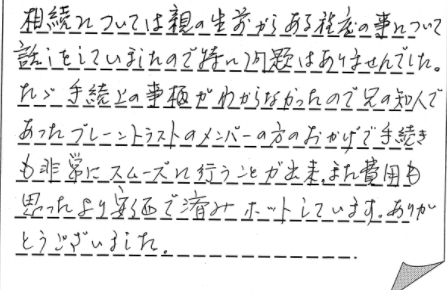 相続については親の生前からある程度の事について
話しをしていましたので特に問題はありませんでした。
ただ手続上の事柄がわからなかったので兄の知人で
あったブレーントラストのメンバーの方のおかげで手続き
も非常にスムーズに行うことが出来、また費用も
思ったより安価で済みホットしています。ありが
とうございました。